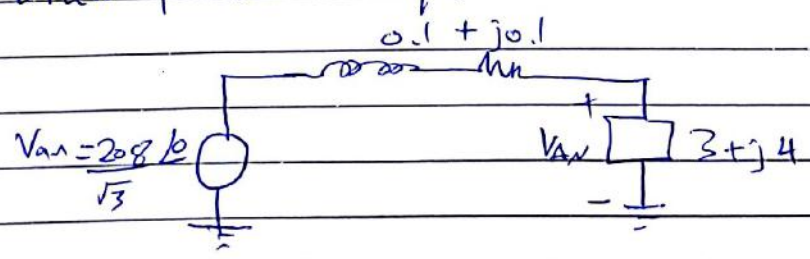 0.1 + j0.1
+
Van = 208 ∠0
√3
VAN
3+j4
-